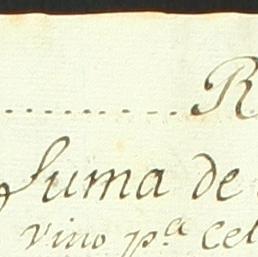 .................. R
Suma de
vino p.ª Cel